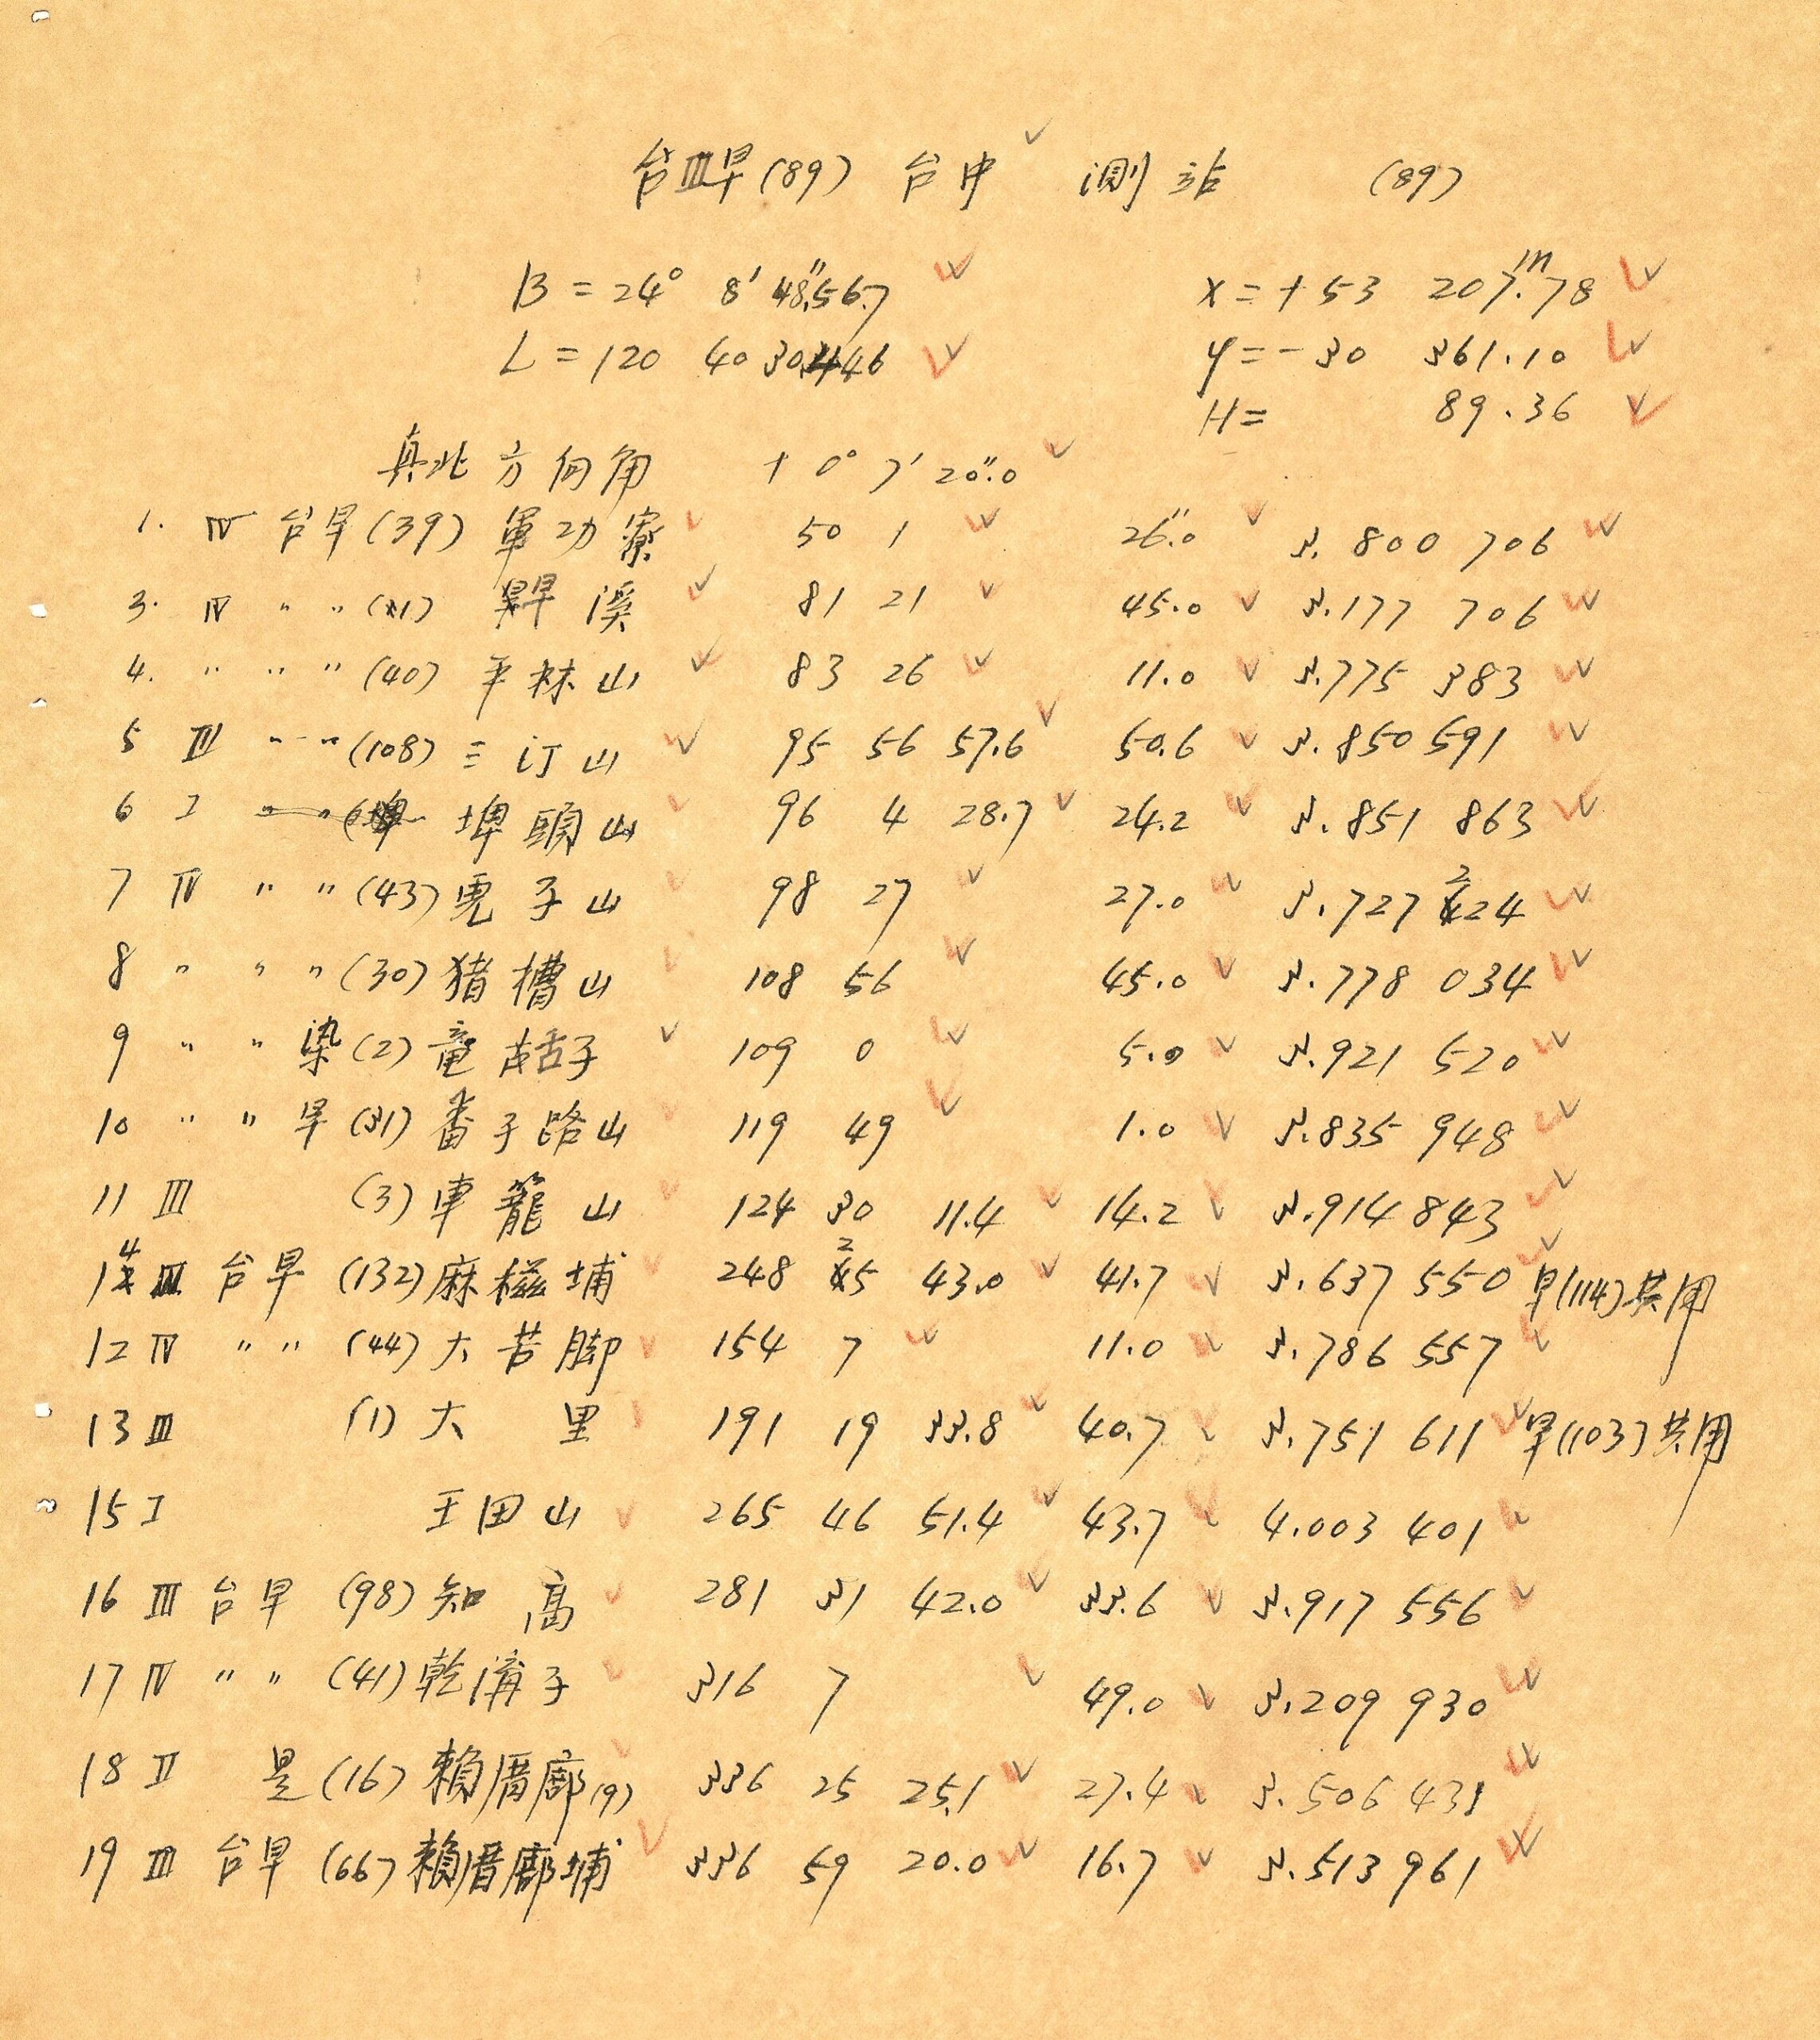 台Ⅲ旱(89) 台中 測站 (89)
B = 24° 8' 48".567 x = +53 207.78 m
L = 120 40 30.446 y = -30 361.10
H = 89.36
真北方何角 + 0° 7' 20".0
1. Ⅳ 台旱(39) 軍功寮 50 1 26".0 3. 800 706
3. Ⅳ 〃 〃 旱溪 81 21 45.0 3.177 706
4. 〃 〃 〃 (40) 平林山 83 26 11.0 3.775 383
5 Ⅲ 〃 〃 (108) 三汀山 95 56 57.6 50.6 3.850 591
6 I 埤頭山 96 4 28.7 24.2 3.851 863
7 Ⅳ 〃 〃 (43) 児子山 98 27 27.0 3.727 224
8 〃 〃 〃 (30) 猪槽山 108 56 45.0 3.778 034
9 〃 〃 染(2) 竜子 109 0 5.0 3.921 520
10 〃 〃 旱(31) 番子路山 119 49 1.0 3.835 948
11 Ⅲ (3) 車籠山 124 30 11.4 14.2 3.914 843
14 Ⅲ 台旱 (132) 麻糍埔 248 25 43.0 41.7 3.637 550 旱(114)共用
12 Ⅳ 〃 〃 (44) 大苦脚 154 7 11.0 3.786 557
13 Ⅲ (1) 大里 191 19 33.8 40.7 3.751 611 旱(103)共用
15 I 王田山 265 46 51.4 43.7 4.003 401
16 Ⅲ 台旱 (98) 知高 281 31 42.0 33.6 3.917 556
17 Ⅳ 〃 〃 (41) 乾溝子 316 7 49.0 3.209 930
18 Ⅱ 是(16) 賴厝廍(9) 336 25 25.1 27.4 3.506 431
19 Ⅲ 台旱 (66) 賴厝廍埔 336 59 20.0 16.7 3.513 961